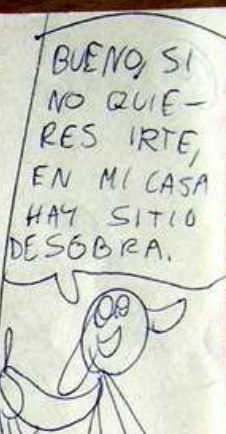 BUENO, SI
NO QUIE-
RES IRTE,
EN MI CASA
HAY SITIO
DESOBRA.